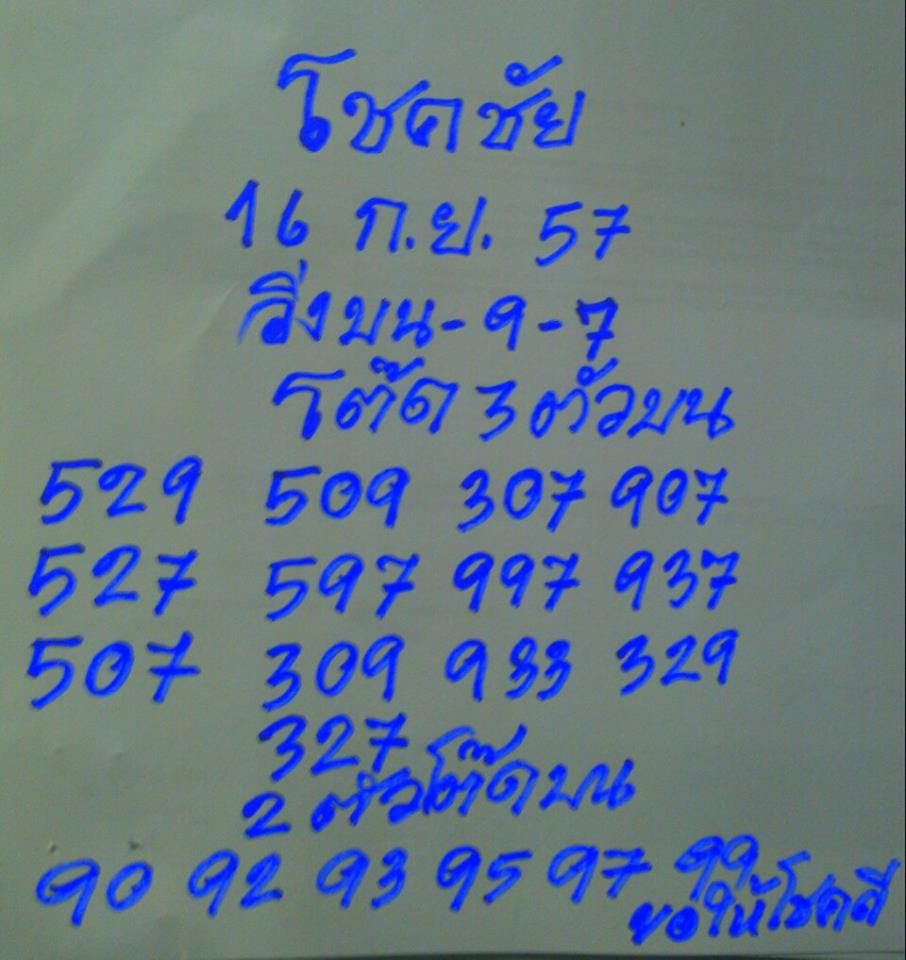 โชคชัย
16 ก.ย. 57
วิ่งบน-9-7
โต๊ด 3 ตัวบน
529 509 307 907
527 597 997 937
507 309 933 329
327
2 ตัวโต๊ดบน
90 92 93 95 97 99
ขอให้โชคดี